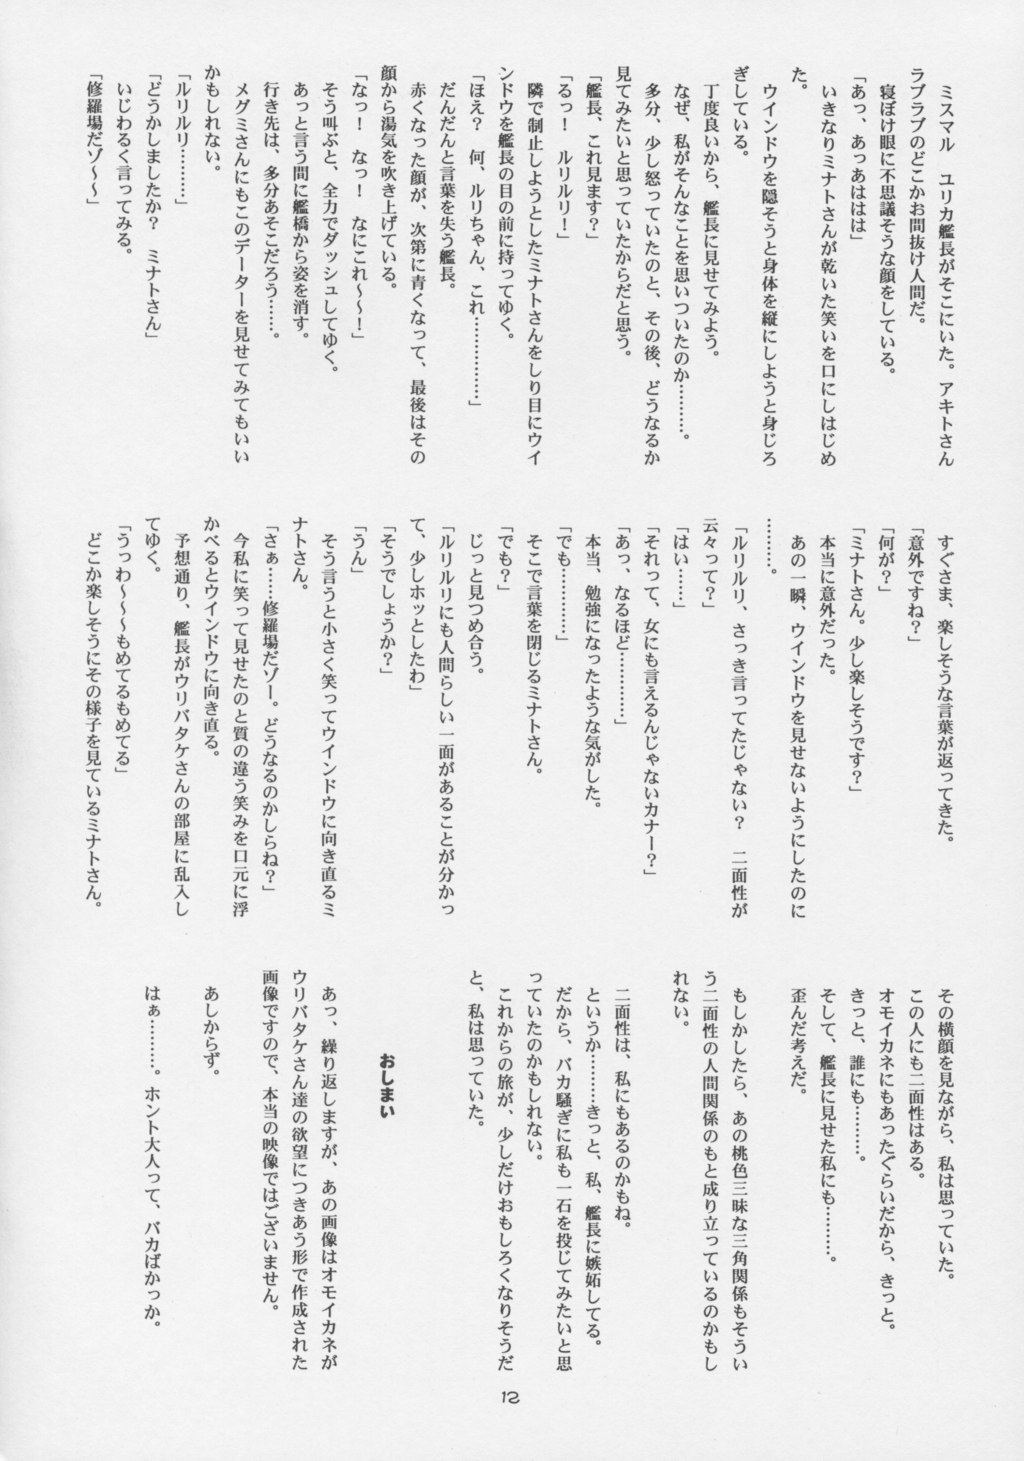 ミスマル　ユリカ艦長がそこにいた。アキトさん
ラブラブのどこかお間抜け人間だ。
寝ぼけ眼に不思議そうな顔をしている。
「あっ、あっあははは」
いきなりミナトさんが乾いた笑いを口にしはじめ
た。
ウインドウを隠そうと身体を縦にしようと身じろ
ぎしている。
丁度良いから、艦長に見せてみよう。
なぜ、私がそんなことを思いついたのか…………。
多分、少し怒っていたのと、その後、どうなるか
見てみたいと思っていたからだと思う。
「艦長、これ見ます？」
「るっ！　ルリルリ！」
隣で制止しようとしたミナトさんをしり目にウイ
ンドウを艦長の目の前に持ってゆく。
「ほえ？　何、ルリちゃん、これ………………」
だんだんと言葉を失う艦長。
赤くなった顔が、次第に青くなって、最後はその
顔から湯気を吹き上げている。
「なっ！　なっ！　なにこれ〜〜！」
そう叫ぶと、全力でダッシュしてゆく。
あっと言う間に艦橋から姿を消す。
行き先は、多分あそこだろう……。
メグミさんにもこのデーターを見せてみてもいい
かもしれない。
「ルリルリ………」
「どうかしましたか？　ミナトさん」
いじわるく言ってみる。
「修羅場だゾ〜〜」
すぐさま、楽しそうな言葉が返ってきた。
「意外ですね？」
「何が？」
「ミナトさん。少し楽しそうです？」
本当に意外だった。
あの一瞬、ウインドウを見せないようにしたのに
………。
「ルリルリ、さっき言ってたじゃない？　二面性が
云々って？」
「はい……」
「それって、女にも言えるんじゃないカナー？」
「あっ、なるほど…………」
本当、勉強になったような気がした。
「でも…………」
そこで言葉を閉じるミナトさん。
「でも？」
じっと見つめ合う。
「ルリルリにも人間らしい一面があることが分かっ
て、少しホッとしたわ」
「そうでしょうか？」
「うん」
そう言うと小さく笑ってウインドウに向き直るミ
ナトさん。
「さぁ……修羅場だゾー。どうなるのかしらね？」
今私に笑って見せたのと質の違う笑みを口元に浮
かべるとウインドウに向き直る。
予想通り、艦長がウリバタケさんの部屋に乱入し
てゆく。
「うっわ〜〜〜もめてるもめてる」
どこか楽しそうにその様子を見ているミナトさん。
その横顔を見ながら、私は思っていた。
この人にも二面性はある。
オモイカネにもあったぐらいだから、きっと。
きっと、誰にも………。
そして、艦長に見せた私にも………。
歪んだ考えだ。
もしかしたら、あの桃色三昧な三角関係もそうい
う二面性の人間関係のもと成り立っているのかもし
れない。
二面性は、私にもあるのかもね。
というか………きっと、私、艦長に嫉妬してる。
だから、バカ騒ぎに私も一石を投じてみたいと思
っていたのかもしれない。
これからの旅が、少しだけおもしろくなりそうだ
と、私は思っていた。
おしまい
あっ、繰り返しますが、あの画像はオモイカネが
ウリバタケさん達の欲望につきあう形で作成された
画像ですので、本当の映像ではございません。
あしからず。
はぁ………。ホント大人って、バカばかっか。
12